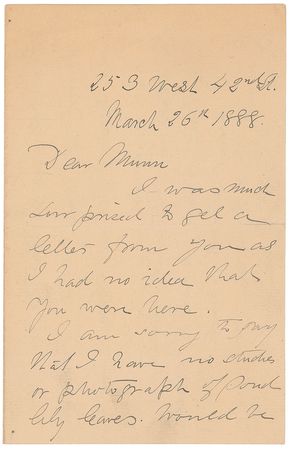 253 West 42nd St.
March 26th 1888.
Dear Munn
I was much
surprised to get a
letter from you as
I had no idea that
you were here.
I am sorry to say
that I have no studies
or photograph of Pond
lily leaves. Would be